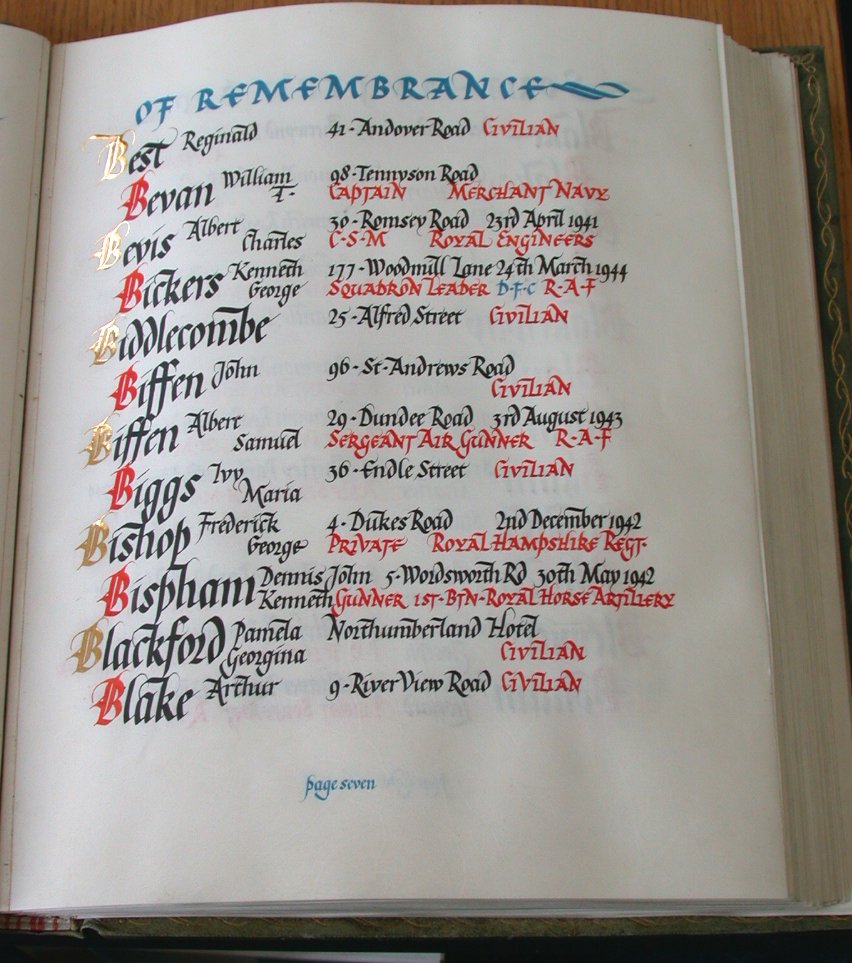 OF REMEMBRANCE
Best Reginald 41·Andover Road Civilian
Bevan William T· 98·Tennyson Road
Captain Merchant Navy
Bevis Albert Charles 30·Romsey Road 23rd April 1941
C·S·M Royal Engineers
Bickers Kenneth George 177·Woodmill Lane 24th March 1944
Squadron Leader D·F·C R·A·F
Biddlecombe 25·Alfred Street Civilian
Biffen John 96·St·Andrews Road
Civilian
Biffen Albert Samuel 29·Dundee Road 3rd August 1943
Sergeant Air Gunner R·A·F
Biggs Ivy Maria 36·Endle Street Civilian
Bishop Frederick George 4·Dukes Road 2nd December 1942
Private Royal Hampshire Regt·
Bispham Dennis John Kenneth 5·Wordsworth Rd 30th May 1942
Gunner 1st·Btn·Royal Horse Artillery
Blackford Pamela Georgina Northumberland Hotel
Civilian
Blake Arthur 9·River View Road Civilian
page seven